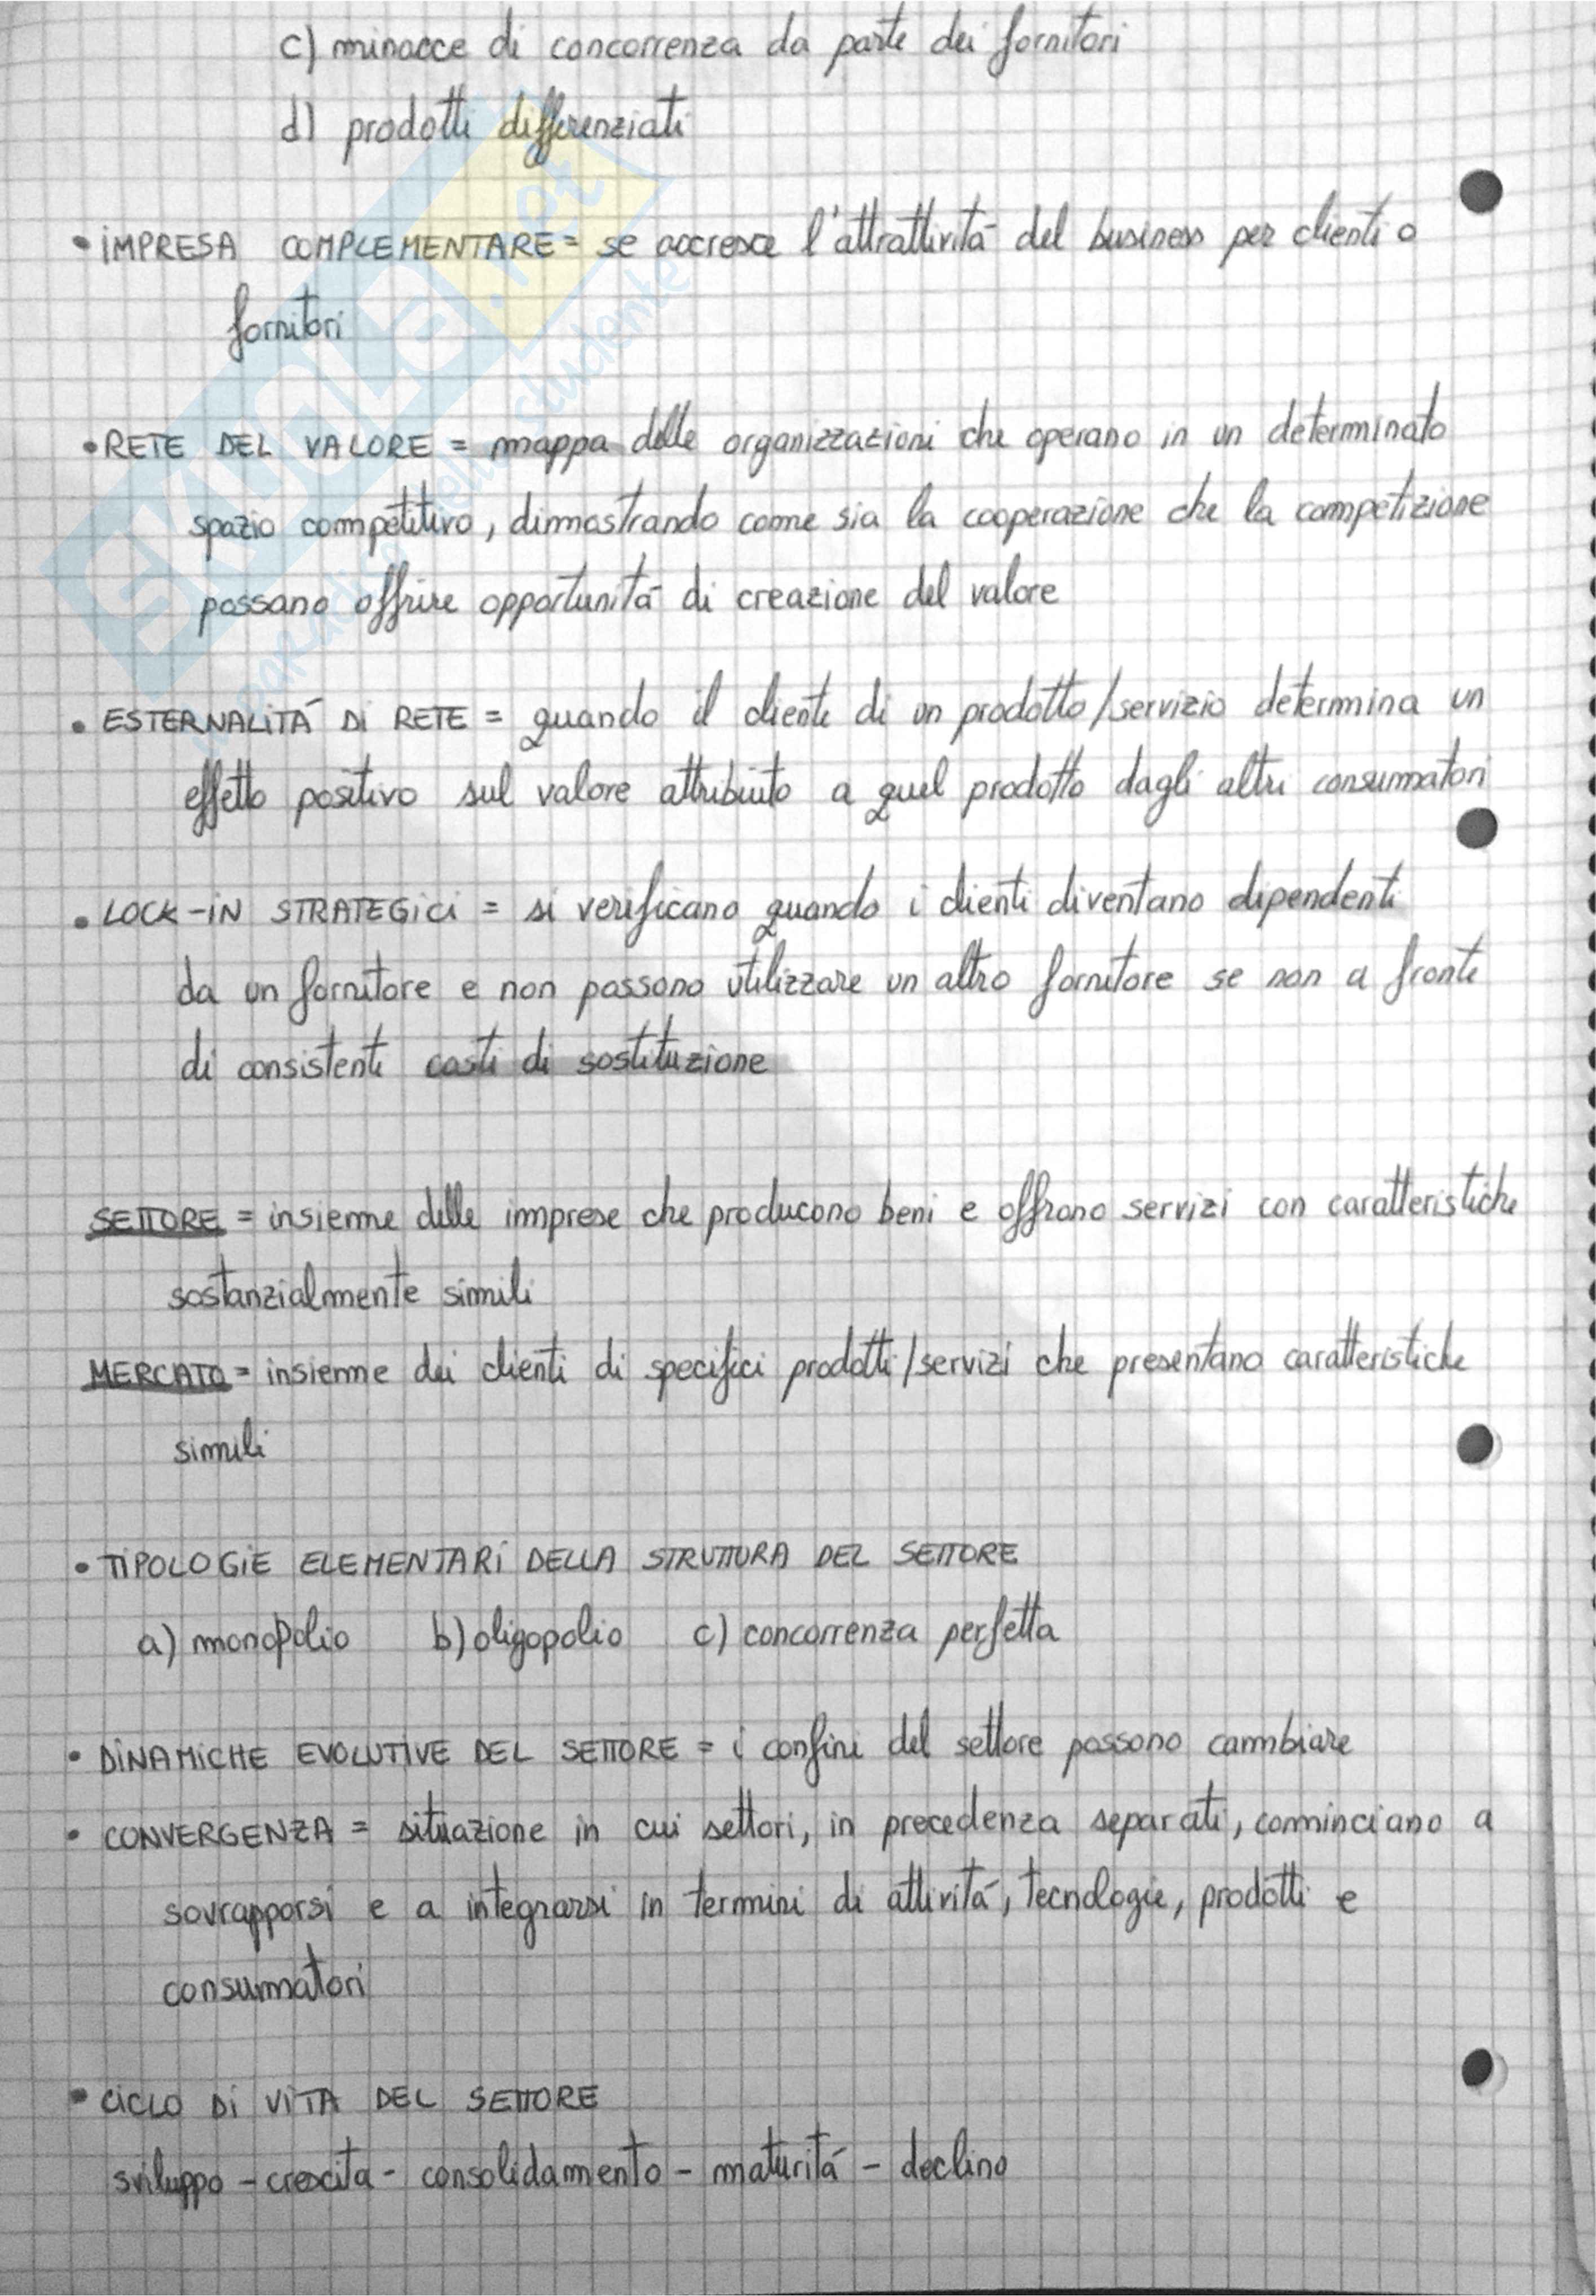 c) minacce di concorrenza da parte dei fornitori
d) prodotti differenziati
• IMPRESA COMPLEMENTARE = se accresce l'attrattività del business per clienti o
fornitori
• RETE DEL VALORE = mappa delle organizzazioni che operano in un determinato
spazio competitivo, dimostrando come sia la cooperazione che la competizione
possano offrire opportunità di creazione del valore
• ESTERNALITÀ DI RETE = quando il cliente di un prodotto/servizio determina un
effetto positivo sul valore attribuito a quel prodotto dagli altri consumatori
• LOCK-IN STRATEGICI = si verificano quando i clienti diventano dipendenti
da un fornitore e non possono utilizzare un altro fornitore se non a fronte
di consistenti costi di sostituzione
SETTORE = insieme delle imprese che producono beni e offrono servizi con caratteristiche
sostanzialmente simili
MERCATO = insieme dei clienti di specifici prodotti/servizi che presentano caratteristiche
simili
• TIPOLOGIE ELEMENTARI DELLA STRUTTURA DEL SETTORE
a) monopolio b) oligopolio c) concorrenza perfetta
• DINAMICHE EVOLUTIVE DEL SETTORE = i confini del settore possono cambiare
• CONVERGENZA = situazione in cui settori, in precedenza separati, cominciano a
sovrapporsi e a integrarsi in termini di attività, tecnologie, prodotti e
consumatori
• CICLO DI VITA DEL SETTORE
sviluppo - crescita - consolidamento - maturità - declino
SKUOLA.net
il paradiso dello studente